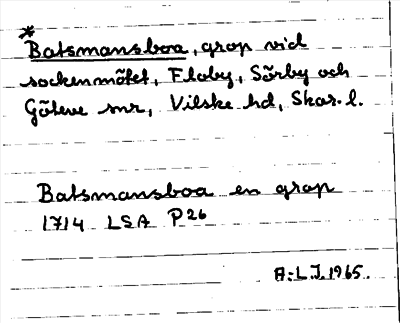 *
Batsmansboa, grop vid
sockenmötet, Floby, Sörby och
Göteve snr, Vilske hd, Skar. l.
Batsmansboa en grop
1714 LSA P26
A:L.J. 1965.